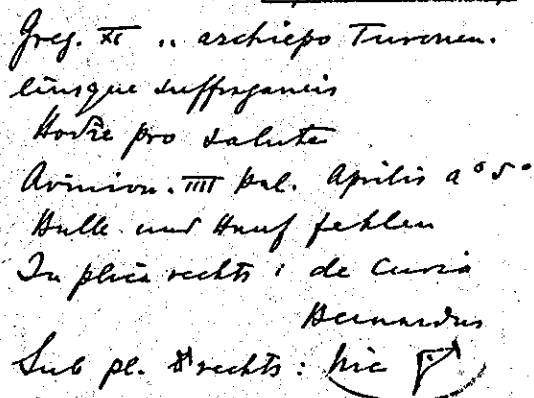 Greg. XI .. archiepo Turonen.
eiusque suffraganeis
Hodie pro salute
Avinion. IIII kal. Aprilis a° 5°
Bulle und Hanf fehlen
In plica rechts: de Curia
Bernardus
Sub pl. rechts: hic